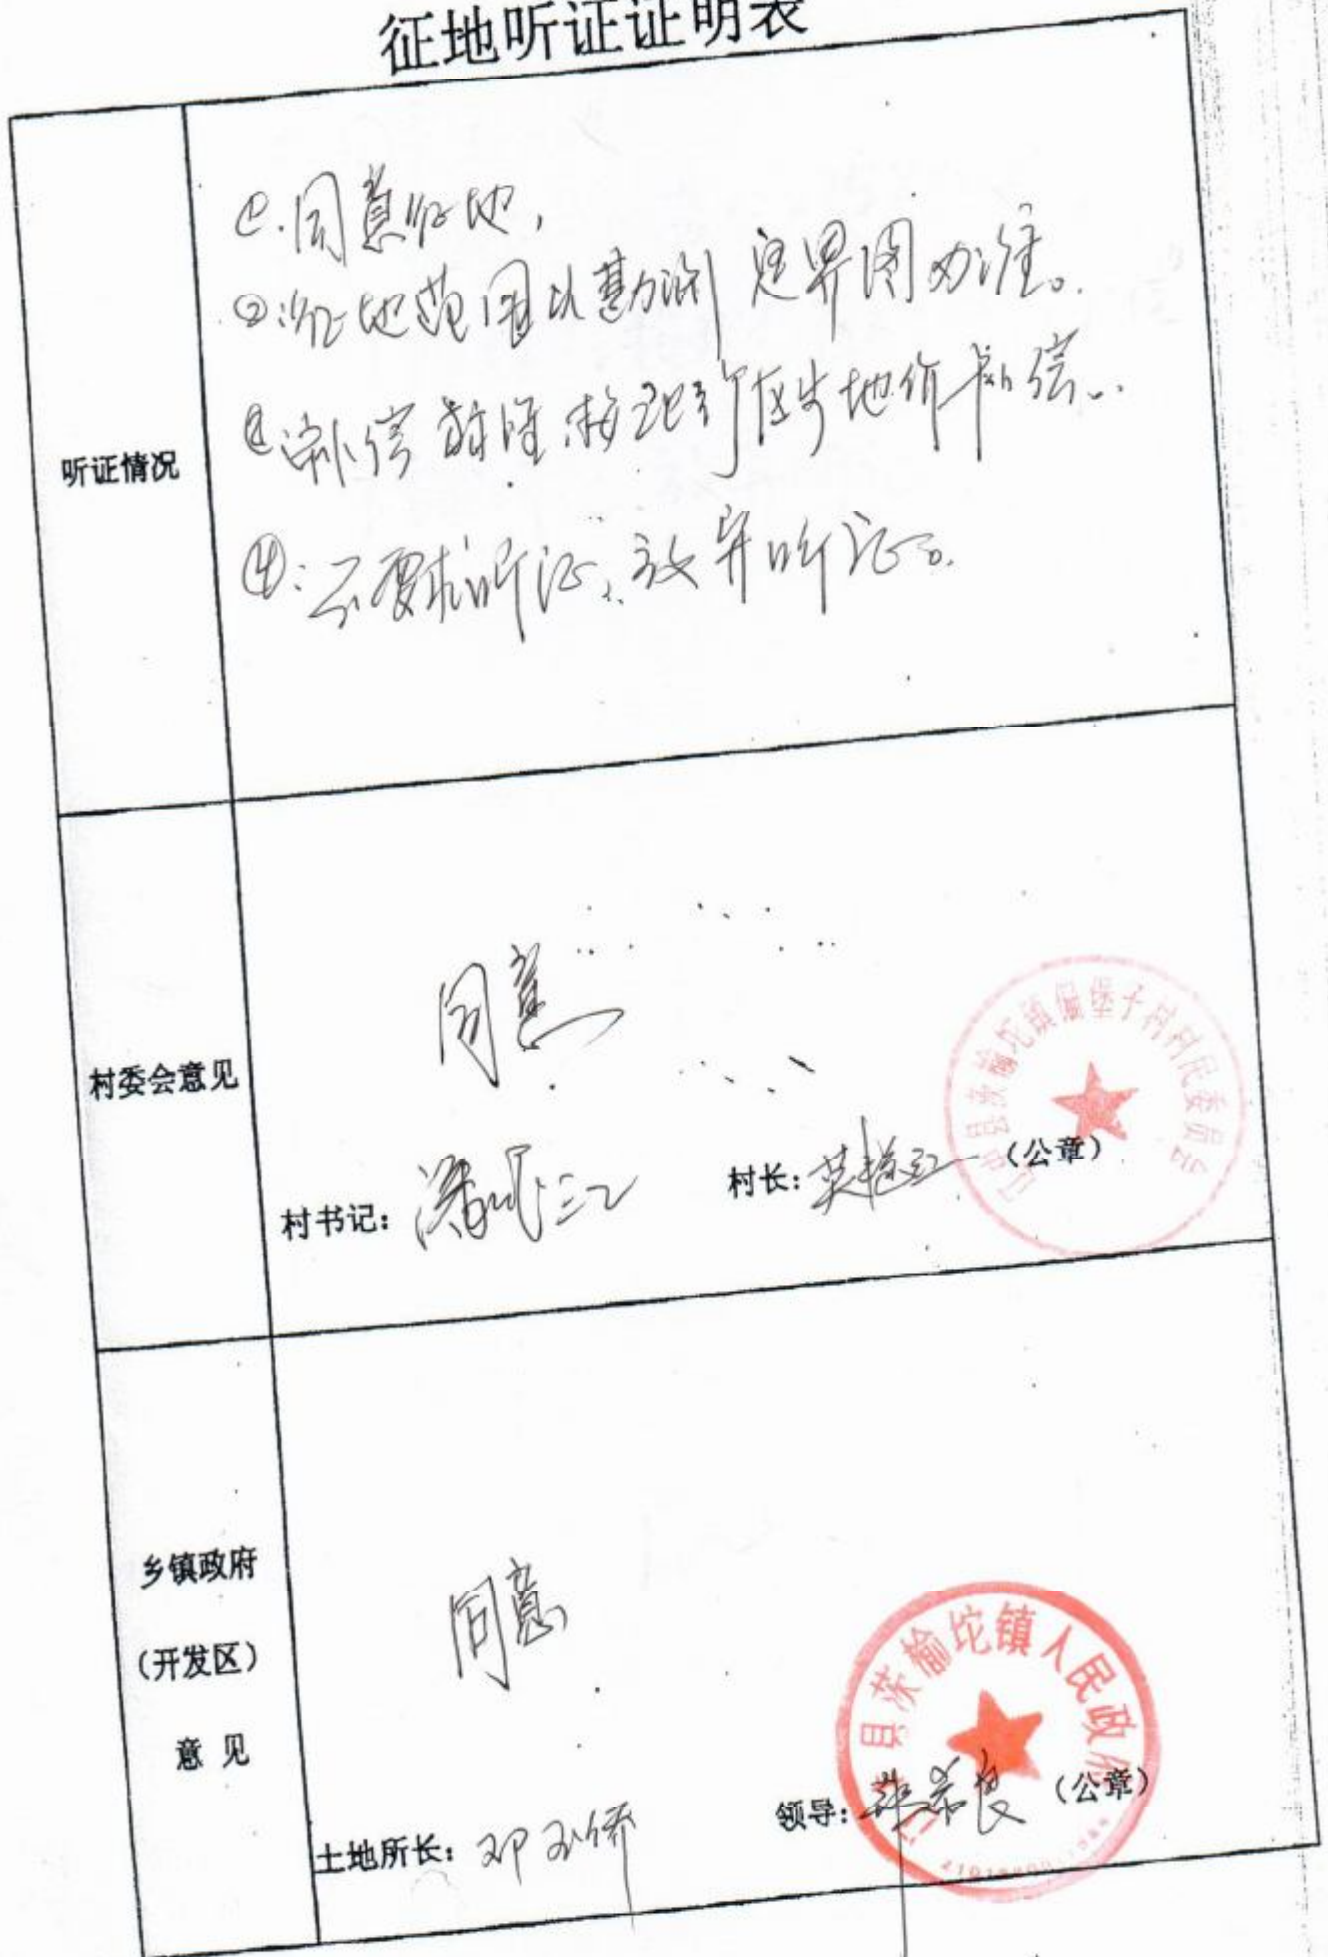 征地听证证明表
听证情况
①.同意征地,
②:征地范围以勘测定界图为准。
③补偿标准按地行区片地价补偿。
④:不要求听证、放弃听证。
村委会意见
同意
村书记:
村长:
(公章)
县茨榆坨镇偏堡子村村民委员会
乡镇政府
(开发区)
意 见
同意
土地所长:邓玉侨
领导:
(公章)
县茨榆坨镇人民政府